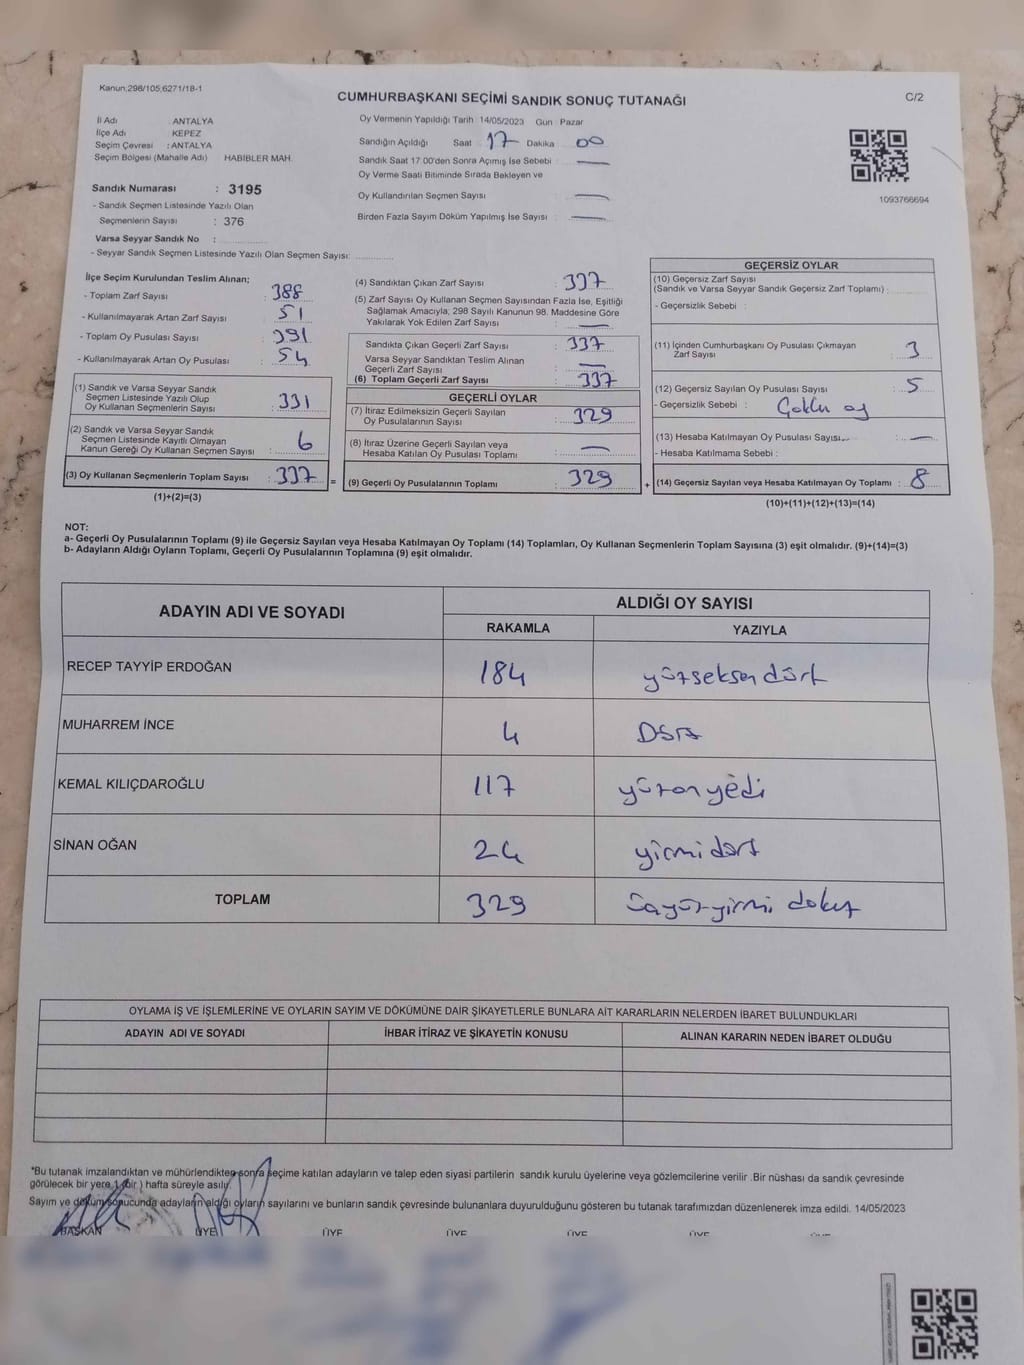 Kanun;298/105,6271/18-1
CUMHURBAŞKANI SEÇİMİ SANDIK SONUÇ TUTANAĞI
C/2
İl Adı : ANTALYA
İlçe Adı : KEPEZ
Seçim Çevresi : ANTALYA
Seçim Bölgesi (Mahalle Adı) HABİBLER MAH.
Sandık Numarası : 3195
- Sandık Seçmen Listesinde Yazılı Olan
Seçmenlerin Sayısı : 376
Varsa Seyyar Sandık No :
- Seyyar Sandık Seçmen Listesinde Yazılı Olan Seçmen Sayısı:
Oy Vermenin Yapıldığı Tarih 14/05/2023 Gün : Pazar
Sandığın Açıldığı Saat 17 Dakika 00
Sandık Saat 17.00'den Sonra Açımış İse Sebebi : —
Oy Verme Saati Bitiminde Sırada Bekleyen ve
Oy Kullandırılan Seçmen Sayısı : —
Birden Fazla Sayım Döküm Yapılmış İse Sayısı : —
1093766694
İlçe Seçim Kurulundan Teslim Alınan;
- Toplam Zarf Sayısı : 388
- Kullanılmayarak Artan Zarf Sayısı : 51
- Toplam Oy Pusulası Sayısı : 391
- Kullanılmayarak Artan Oy Pusulası : 54
(1) Sandık ve Varsa Seyyar Sandık
Seçmen Listesinde Yazılı Olup
Oy Kullanan Seçmenlerin Sayısı : 331
(2) Sandık ve Varsa Seyyar Sandık
Seçmen Listesinde Kayıtlı Olmayan
Kanun Gereği Oy Kullanan Seçmen Sayısı : 6
(3) Oy Kullanan Seçmenlerin Toplam Sayısı : 337 =
(1)+(2)=(3)
(4) Sandıktan Çıkan Zarf Sayısı : 337
(5) Zarf Sayısı Oy Kullanan Seçmen Sayısından Fazla İse, Eşitliği
Sağlamak Amacıyla, 298 Sayılı Kanunun 98. Maddesine Göre
Yakılarak Yok Edilen Zarf Sayısı : —
Sandıkta Çıkan Geçerli Zarf Sayısı : 337
Varsa Seyyar Sandıktan Teslim Alınan
Geçerli Zarf Sayısı : —
(6) Toplam Geçerli Zarf Sayısı : 337
GEÇERLİ OYLAR
(7) İtiraz Edilmeksizin Geçerli Sayılan
Oy Pusulalarının Sayısı : 329
(8) İtiraz Üzerine Geçerli Sayılan veya
Hesaba Katılan Oy Pusulası Toplamı : —
(9) Geçerli Oy Pusulalarının Toplamı : 329 +
GEÇERSİZ OYLAR
(10) Geçersiz Zarf Sayısı
(Sandık ve Varsa Seyyar Sandık Geçersiz Zarf Toplamı) :
- Geçersizlik Sebebi :
(11) İçinden Cumhurbaşkanı Oy Pusulası Çıkmayan
Zarf Sayısı : 3
(12) Geçersiz Sayılan Oy Pusulası Sayısı : 5
- Geçersizlik Sebebi : Çoklu oy
(13) Hesaba Katılmayan Oy Pusulası Sayısı : —
- Hesaba Katılmama Sebebi :
(14) Geçersiz Sayılan veya Hesaba Katılmayan Oy Toplamı : 8
(10)+(11)+(12)+(13)=(14)
NOT:
a- Geçerli Oy Pusulalarının Toplamı (9) ile Geçersiz Sayılan veya Hesaba Katılmayan Oy Toplamı (14) Toplamları, Oy Kullanan Seçmenlerin Toplam Sayısına (3) eşit olmalıdır. (9)+(14)=(3)
b- Adayların Aldığı Oyların Toplamı, Geçerli Oy Pusulalarının Toplamına (9) eşit olmalıdır.
ADAYIN ADI VE SOYADI
ALDIĞI OY SAYISI
RAKAMLA YAZIYLA
RECEP TAYYİP ERDOĞAN 184 yüzseksendört
MUHARREM İNCE 4 Dört
KEMAL KILIÇDAROĞLU 117 yüzonyedi
SİNAN OĞAN 24 yirmidört
TOPLAM 329 üçyüzyirmi dokuz
OYLAMA İŞ VE İŞLEMLERİNE VE OYLARIN SAYIM VE DÖKÜMÜNE DAİR ŞİKAYETLERLE BUNLARA AİT KARARLARIN NELERDEN İBARET BULUNDUKLARI
ADAYIN ADI VE SOYADI İHBAR İTİRAZ VE ŞİKAYETİN KONUSU ALINAN KARARIN NEDEN İBARET OLDUĞU
*Bu tutanak imzalandıktan ve mühürlendikten sonra seçime katılan adayların ve talep eden siyasi partilerin sandık kurulu üyelerine veya gözlemcilerine verilir .Bir nüshası da sandık çevresinde
görülecek bir yere 1 (bir ) hafta süreyle asılır.
Sayım ve döküm sonucunda adayların aldığı oyların sayılarını ve bunların sandık çevresinde bulunanlara duyurulduğunu gösteren bu tutanak tarafımızdan düzenlenerek imza edildi. 14/05/2023
BAŞKAN ÜYE ÜYE ÜYE ÜYE ÜYE